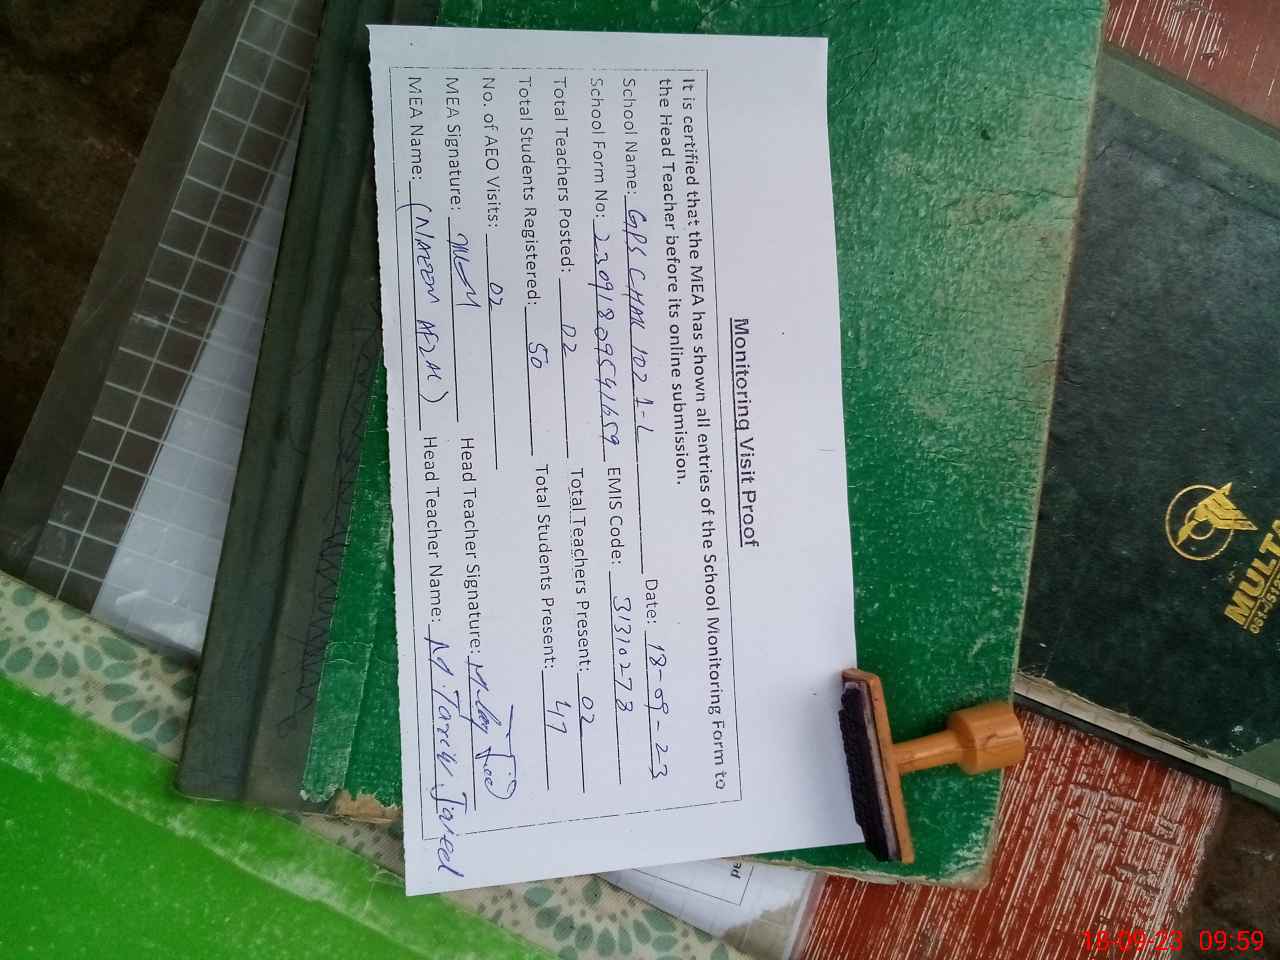 Monitoring Visit Proof
It is certified that the MEA has shown all entries of the School Monitoring Form to
the Head Teacher before its online submission.
School Name: GPS CHAK 102 1-L Date: 18-09-23
School Form No: 230918095941659 EMIS Code: 31310273
Total Teachers Posted: 02 Total Teachers Present: 02
Total Students Registered: 50 Total Students Present: 47
No. of AEO Visits: 02
MEA Signature: Head Teacher Signature:
MEA Name: (NAEEM AFZAL) Head Teacher Name: M Tariq Javed
MULTA
18-09-23 09:59